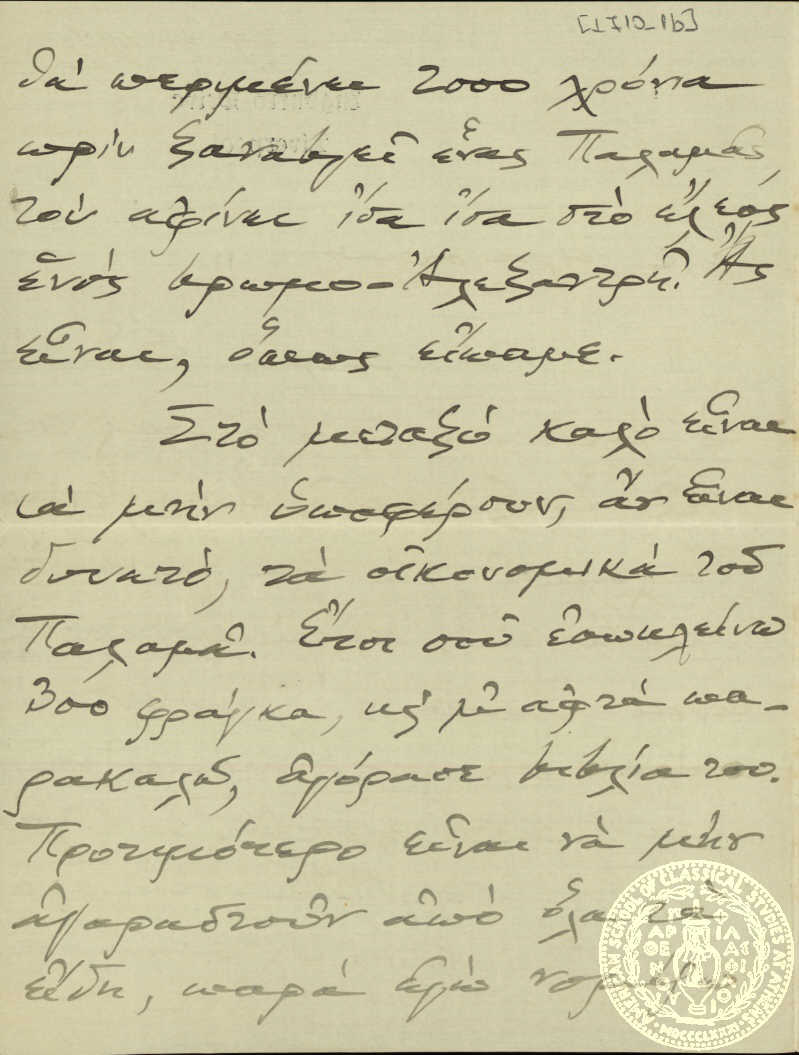 [1710-1b]
θά περιμένει 2000 χρόνια
πρίν ξαναβγεῖ ἕνας Παλαμᾶς,
τόν ἀφίνει ἴσα ἴσα στό ἔλεος
ἑνός βρωμο-Ἀλεξαντρῆ. Ἄς
εἶναι, ὅπως εἴπαμε.
Στό μεταξύ καλό εἶναι
νά μήν ὑποφέρουν, ἄν εἶναι
δυνατό, τά οἰκονομικά τοῦ
Παλαμᾶ. Ἔτσι σοῦ ἐσωκλείνω
300 φράγκα, κι μ' αφτά πα-
ρακαλῶ, ἀγόρασε βιβλία του.
Προτιμότερο εἶναι νά μήν
ἀγοραστοῦν ἀπό ὅλα τά
εἴδη, παρά ἐγώ
AMERICAN SCHOOL OF CLASSICAL STUDIES AT ATHENS
ΠΑΡΘΕΝΟΥ ΦΙΛΑΣ
MDCCCLXXXI